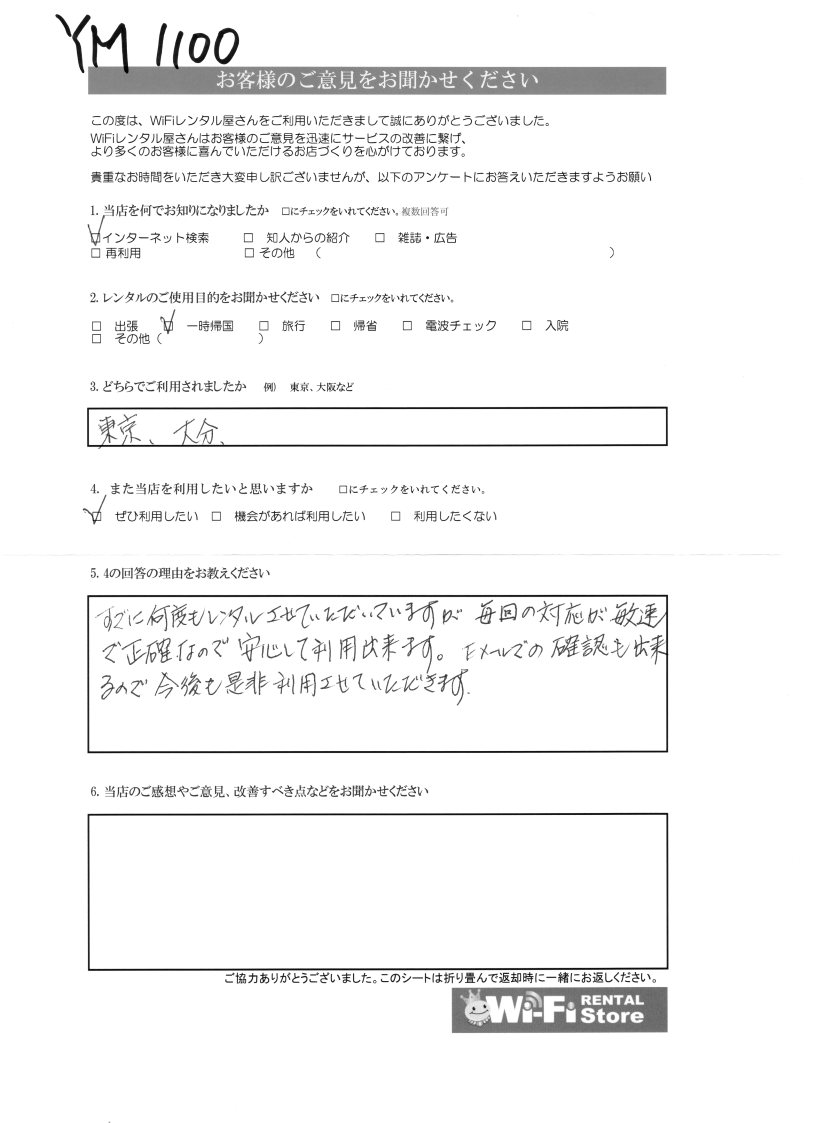 YM 1100
お客様のご意見をお聞かせください
この度は、WiFiレンタル屋さんをご利用いただきまして誠にありがとうございました。
WiFiレンタル屋さんはお客様のご意見を迅速にサービスの改善に繋げ、
より多くのお客様に喜んでいただけるお店づくりを心がけております。
貴重なお時間をいただき大変申し訳ございませんが、以下のアンケートにお答えいただきますようお願い
1. 当店を何でお知りになりましたか □にチェックをいれてください。複数回答可
☑インターネット検索 □ 知人からの紹介 □ 雑誌・広告
□ 再利用 □ その他 ( )
2. レンタルのご使用目的をお聞かせください □にチェックをいれてください。
□ 出張 ☑ 一時帰国 □ 旅行 □ 帰省 □ 電波チェック □ 入院
□ その他 ( )
3. どちらでご利用されましたか 例) 東京、大阪など
東京、大分、
4. また当店を利用したいと思いますか □にチェックをいれてください。
☑ ぜひ利用したい □ 機会があれば利用したい □ 利用したくない
5. 4の回答の理由をお教えください
すでに何度もレンタルさせていただいていますが 毎回の対応が敏速
で正確なので安心して利用出来ます。Eメールでの確認も出来
るので今後も是非利用させていただきます.
6. 当店のご感想やご意見、改善すべき点などをお聞かせください
ご協力ありがとうございました。このシートは折り畳んで返却時に一緒にお返しください。
Wi-Fi RENTAL Store